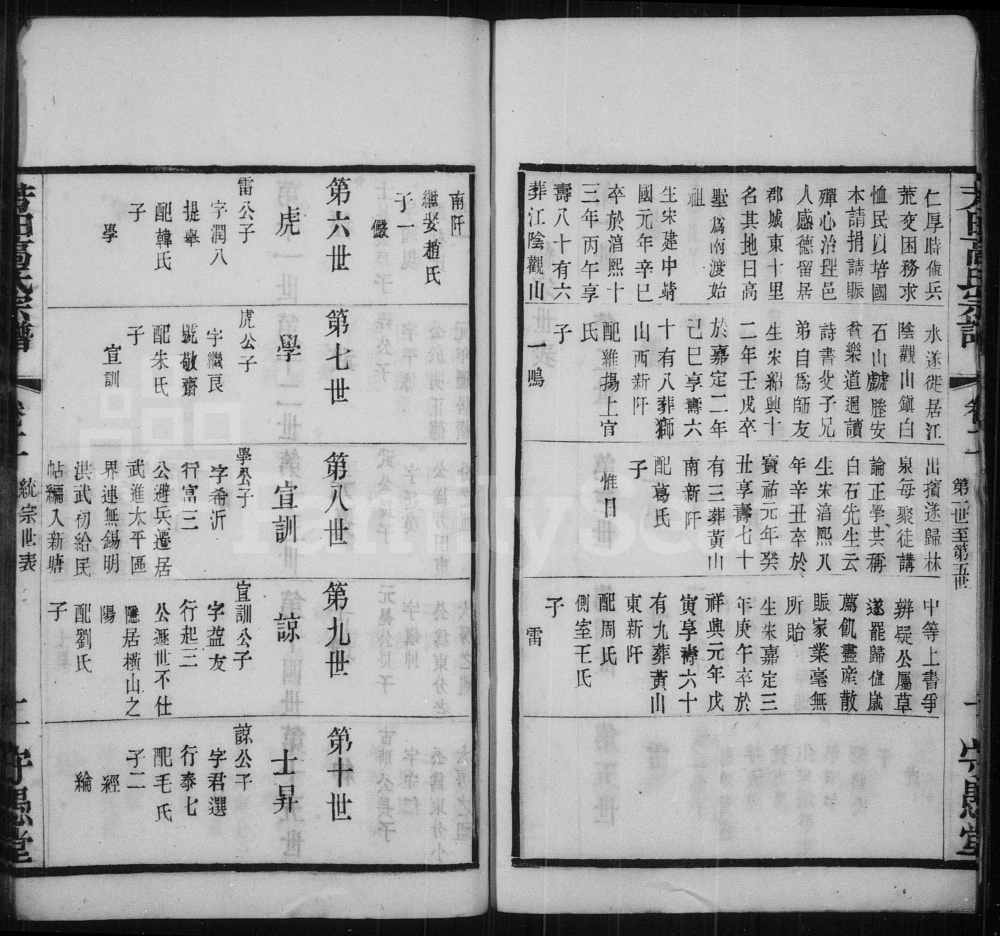 高氏宗譜
卷二
第一世至第五世
一
守愚堂
仁厚時值兵
荒交困務求
恤民以培國
本請捐請賑
殫心治理邑
人感德留居
郡城東十里
名其地日高
墅爲南渡始
祖
生宋建中靖
國元年辛巳
卒於湻熙十
三年丙午享
壽八十有六
葬江陰觀山
水遂徙居江
陰觀山鎭白
石山塍安
貧樂道週讀
詩書父子兄
弟自爲師友
生宋紹興十
二年壬戌卒
於嘉定二年
己巳享壽六
十有八葬獅
山西新阡
配維揚上官
氏
子
一鳴
出擯遂歸林
泉每聚徒講
論正學共稱
白石先生云
生宋湻熙八
年辛丑卒於
寶祐元年癸
丑享壽七十
有三葬黄山
南新阡
配葛氏
子
惟日
中等上書爭
辨疑公屬草
遂罷歸値歲
薦飢盡産散
賑家業毫無
所貽
生宋嘉定三
年庚午卒於
祥興元年戊
寅享壽六十
有九葬黄山
東新阡
配周氏
側室王氏
子
雷
南阡
繼娶趙氏
子一
儼
第六世
虎
雷公子
字潤八
提舉
配韓氏
子
學
第七世
學
虎公子
字繼良
號敬齋
配朱氏
子
宣訓
第八世
宣訓
學公子
字希沂
行富三
公避兵遷居
武進太平區
界連無錫明
洪武初給民
帖編入新塘
第九世
諒
宣訓公子
字益友
行起三
公遯世不仕
隱居橫山之
陽
配劉氏
子
第十世
士昇
諒公子
字君選
行泰七
配毛氏
子二
經
綸
高氏宗譜
卷二
統宗世表
二
守愚堂